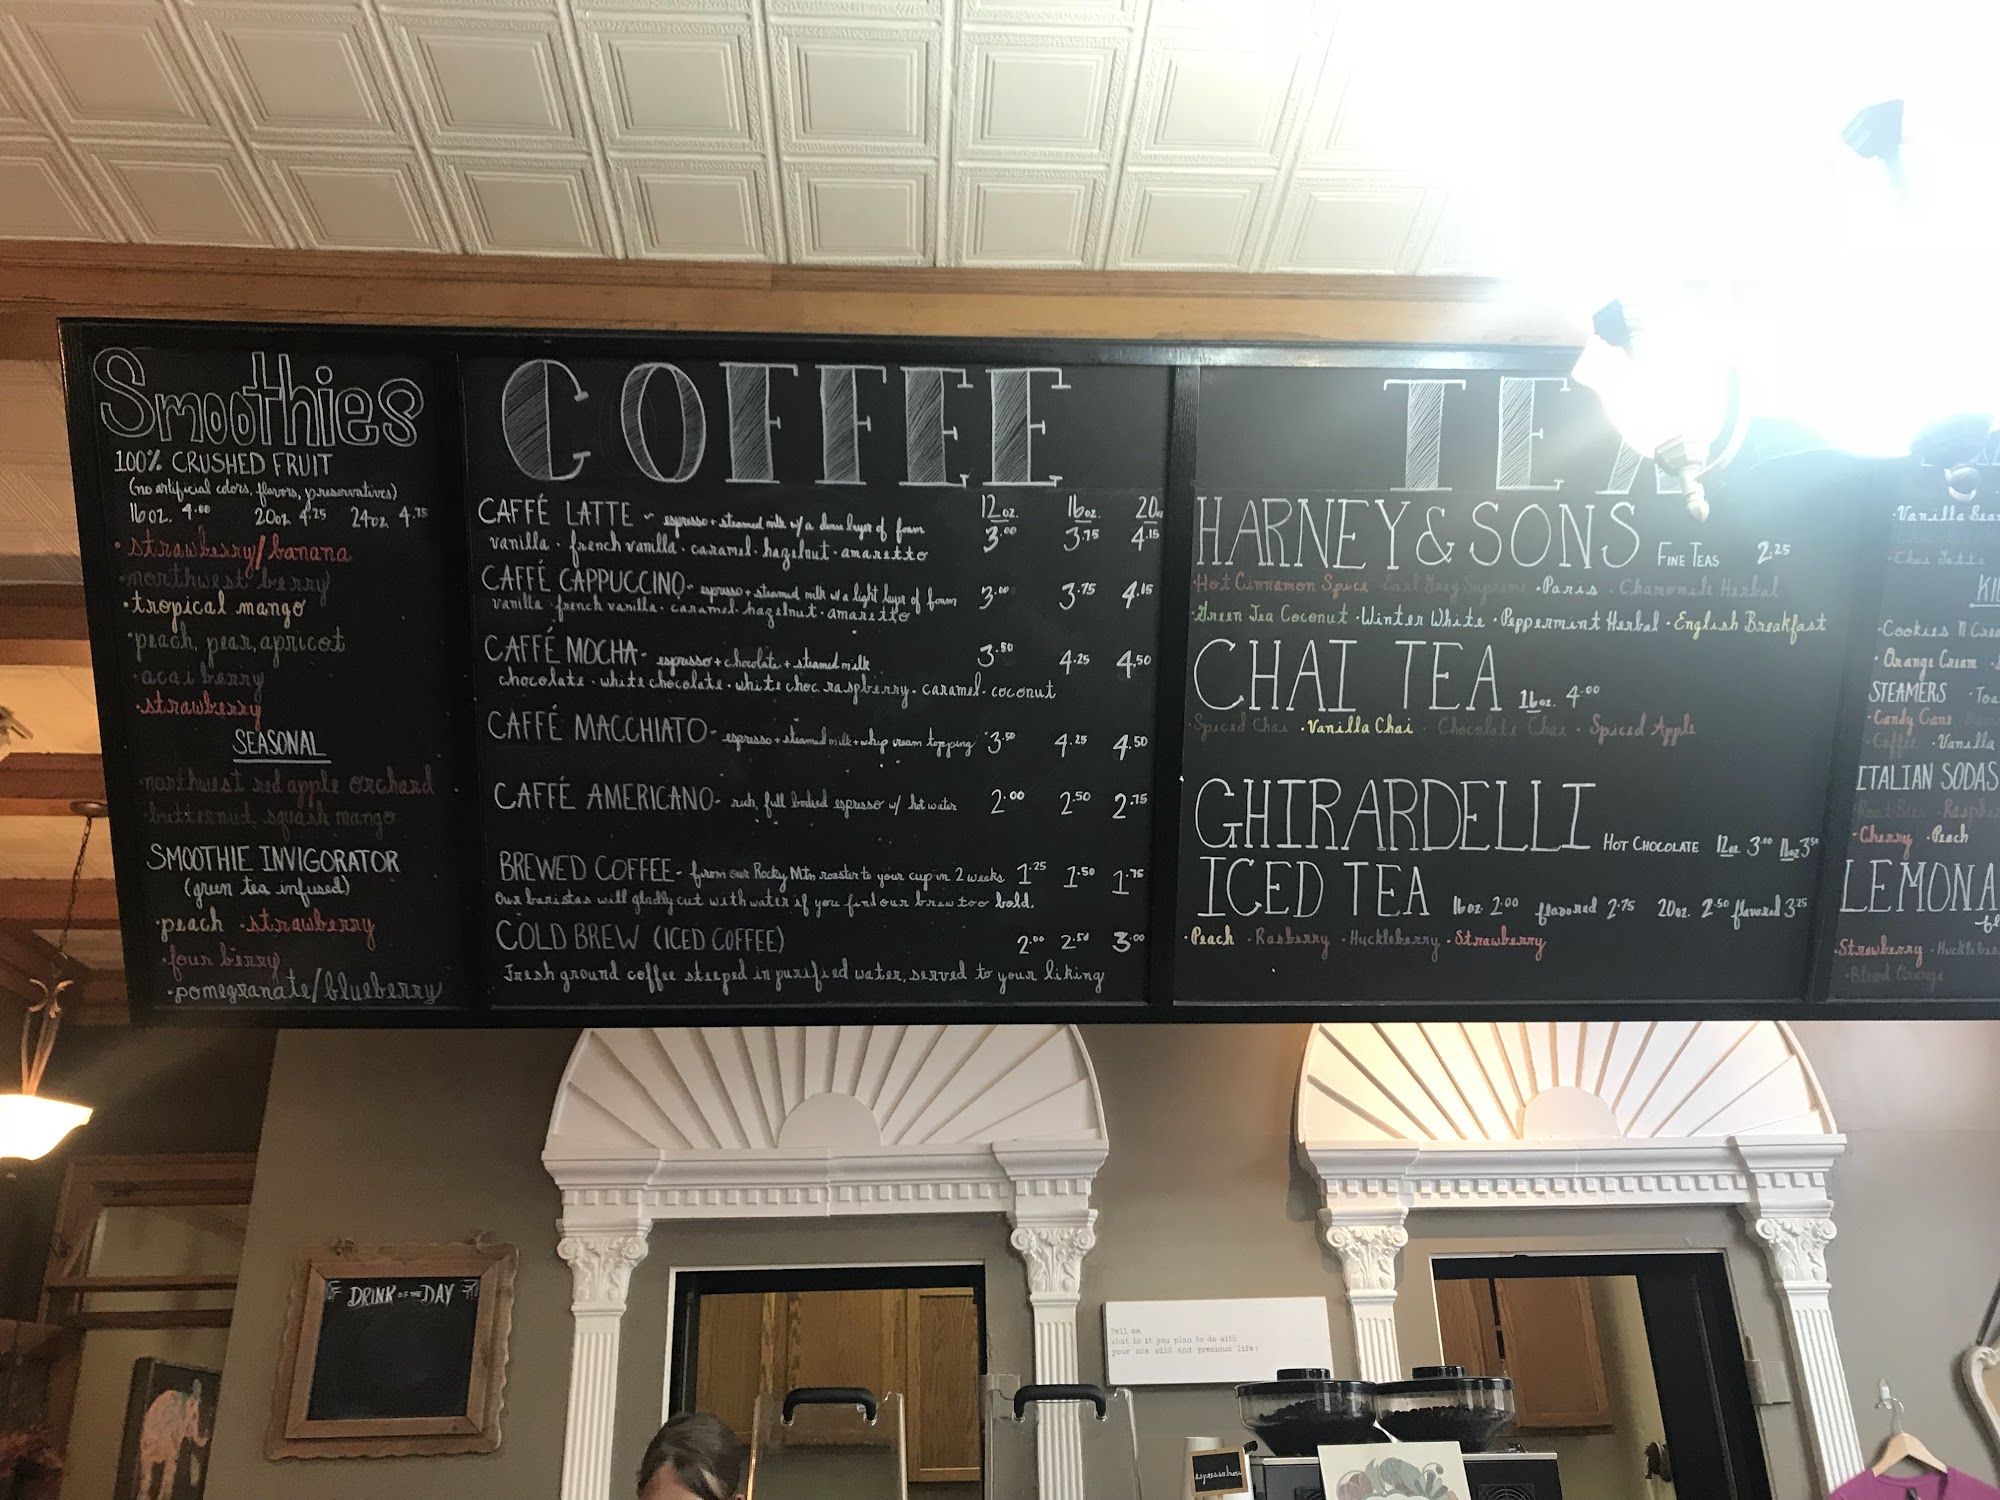 Smoothies
100% CRUSHED FRUIT
(no artificial colors, flavors, preservatives)
16oz. 4.00 20oz. 4.25 24oz. 4.75
· strawberry/banana
· northwest berry
· tropical mango
· peach, pear, apricot
· acai berry
· strawberry
SEASONAL
· northwest red apple orchard
· butternut squash mango
SMOOTHIE INVIGORATOR
(green tea infused)
· peach · strawberry
· four berry
· pomegranate/blueberry
COFFEE
12oz. 16oz. 20oz
CAFFÉ LATTE - espresso + steamed milk w/ a dense layer of foam 3.00 3.75 4.15
vanilla · french vanilla · caramel · hazelnut · amaretto
CAFFÉ CAPPUCCINO - espresso + steamed milk w/ a light layer of foam 3.00 3.75 4.15
vanilla · french vanilla · caramel · hazelnut · amaretto
CAFFÉ MOCHA - espresso + chocolate + steamed milk 3.50 4.25 4.50
chocolate · white chocolate · white choc. raspberry · caramel · coconut
CAFFÉ MACCHIATO - espresso + steamed milk + whip cream topping 3.50 4.25 4.50
CAFFÉ AMERICANO - rich, full bodied espresso w/ hot water 2.00 2.50 2.75
BREWED COFFEE - from our Rocky Mtn roaster to your cup in 2 weeks 1.25 1.50 1.75
Our baristas will gladly cut with water if you find our brew too bold.
COLD BREW (ICED COFFEE) 2.00 2.50 3.00
Fresh ground coffee steeped in purified water, served to your liking
TEA
HARNEY & SONS FINE TEAS 2.25
· Hot Cinnamon Spice · Earl Grey Supreme · Paris · Chamomile Herbal
· Green Tea Coconut · Winter White · Peppermint Herbal · English Breakfast
CHAI TEA 16oz. 4.00
· Spiced Chai · Vanilla Chai · Chocolate Chai · Spiced Apple
GHIRARDELLI HOT CHOCOLATE 12oz. 3.00 16oz 3.50
ICED TEA 16oz. 2.00 flavored 2.75 20oz. 2.50 flavored 3.25
· Peach · Rasberry · Huckleberry · Strawberry
· Vanilla Bean
· Chai Latte
· Cookies N Crea
· Orange Cream
STEAMERS
· Candy Cane
· Coffee · Vanilla
ITALIAN SODAS
· Root Beer
· Cherry · Peach
LEMONA
· Strawberry · Huckleber
· Blood Orange
DRINK OF THE DAY
Tell me
what is it you plan to do with
your one wild and precious life?